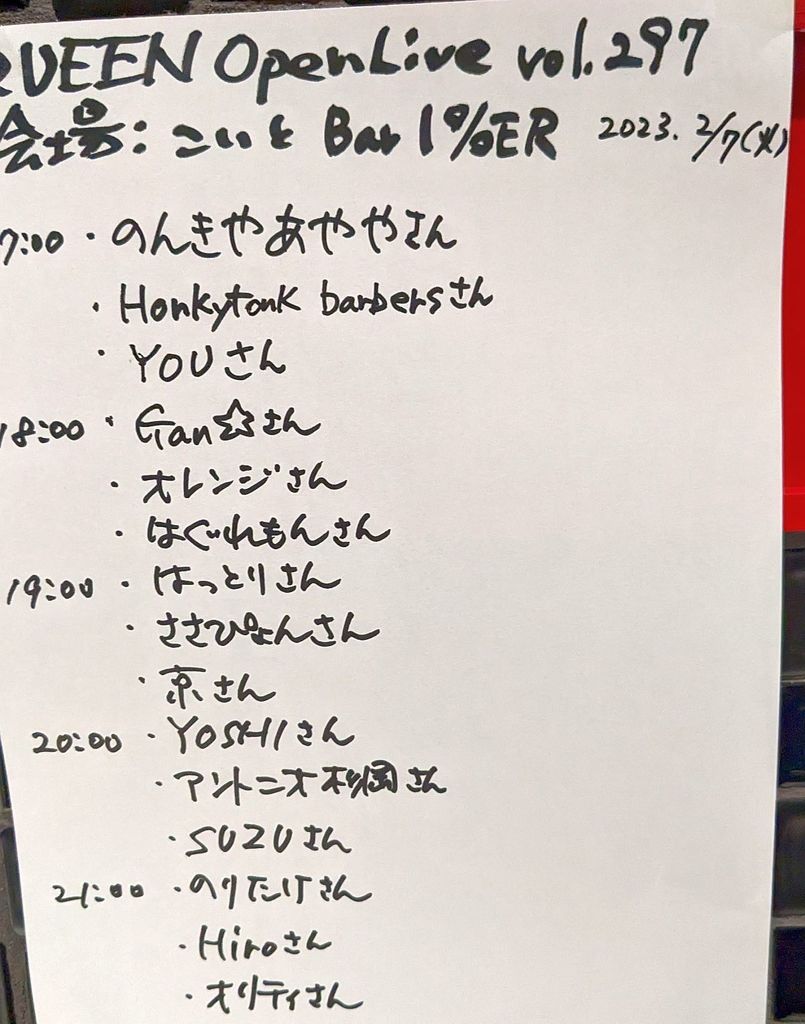 QUEEN OpenLive vol.297
会場:こいと Bar 1%ER 2023.2/7(火)
17:00・のんきやあややさん
・Honkytonk barbersさん
・YOUさん
18:00・Gan☆さん
・オレンジさん
・はぐれもんさん
19:00・はっとりさん
・ささぴょんさん
・京さん
20:00・YOSHIさん
・アントニオ杉岡さん
・SUZUさん
21:00・のりたけさん
・Hiroさん
・オリティさん